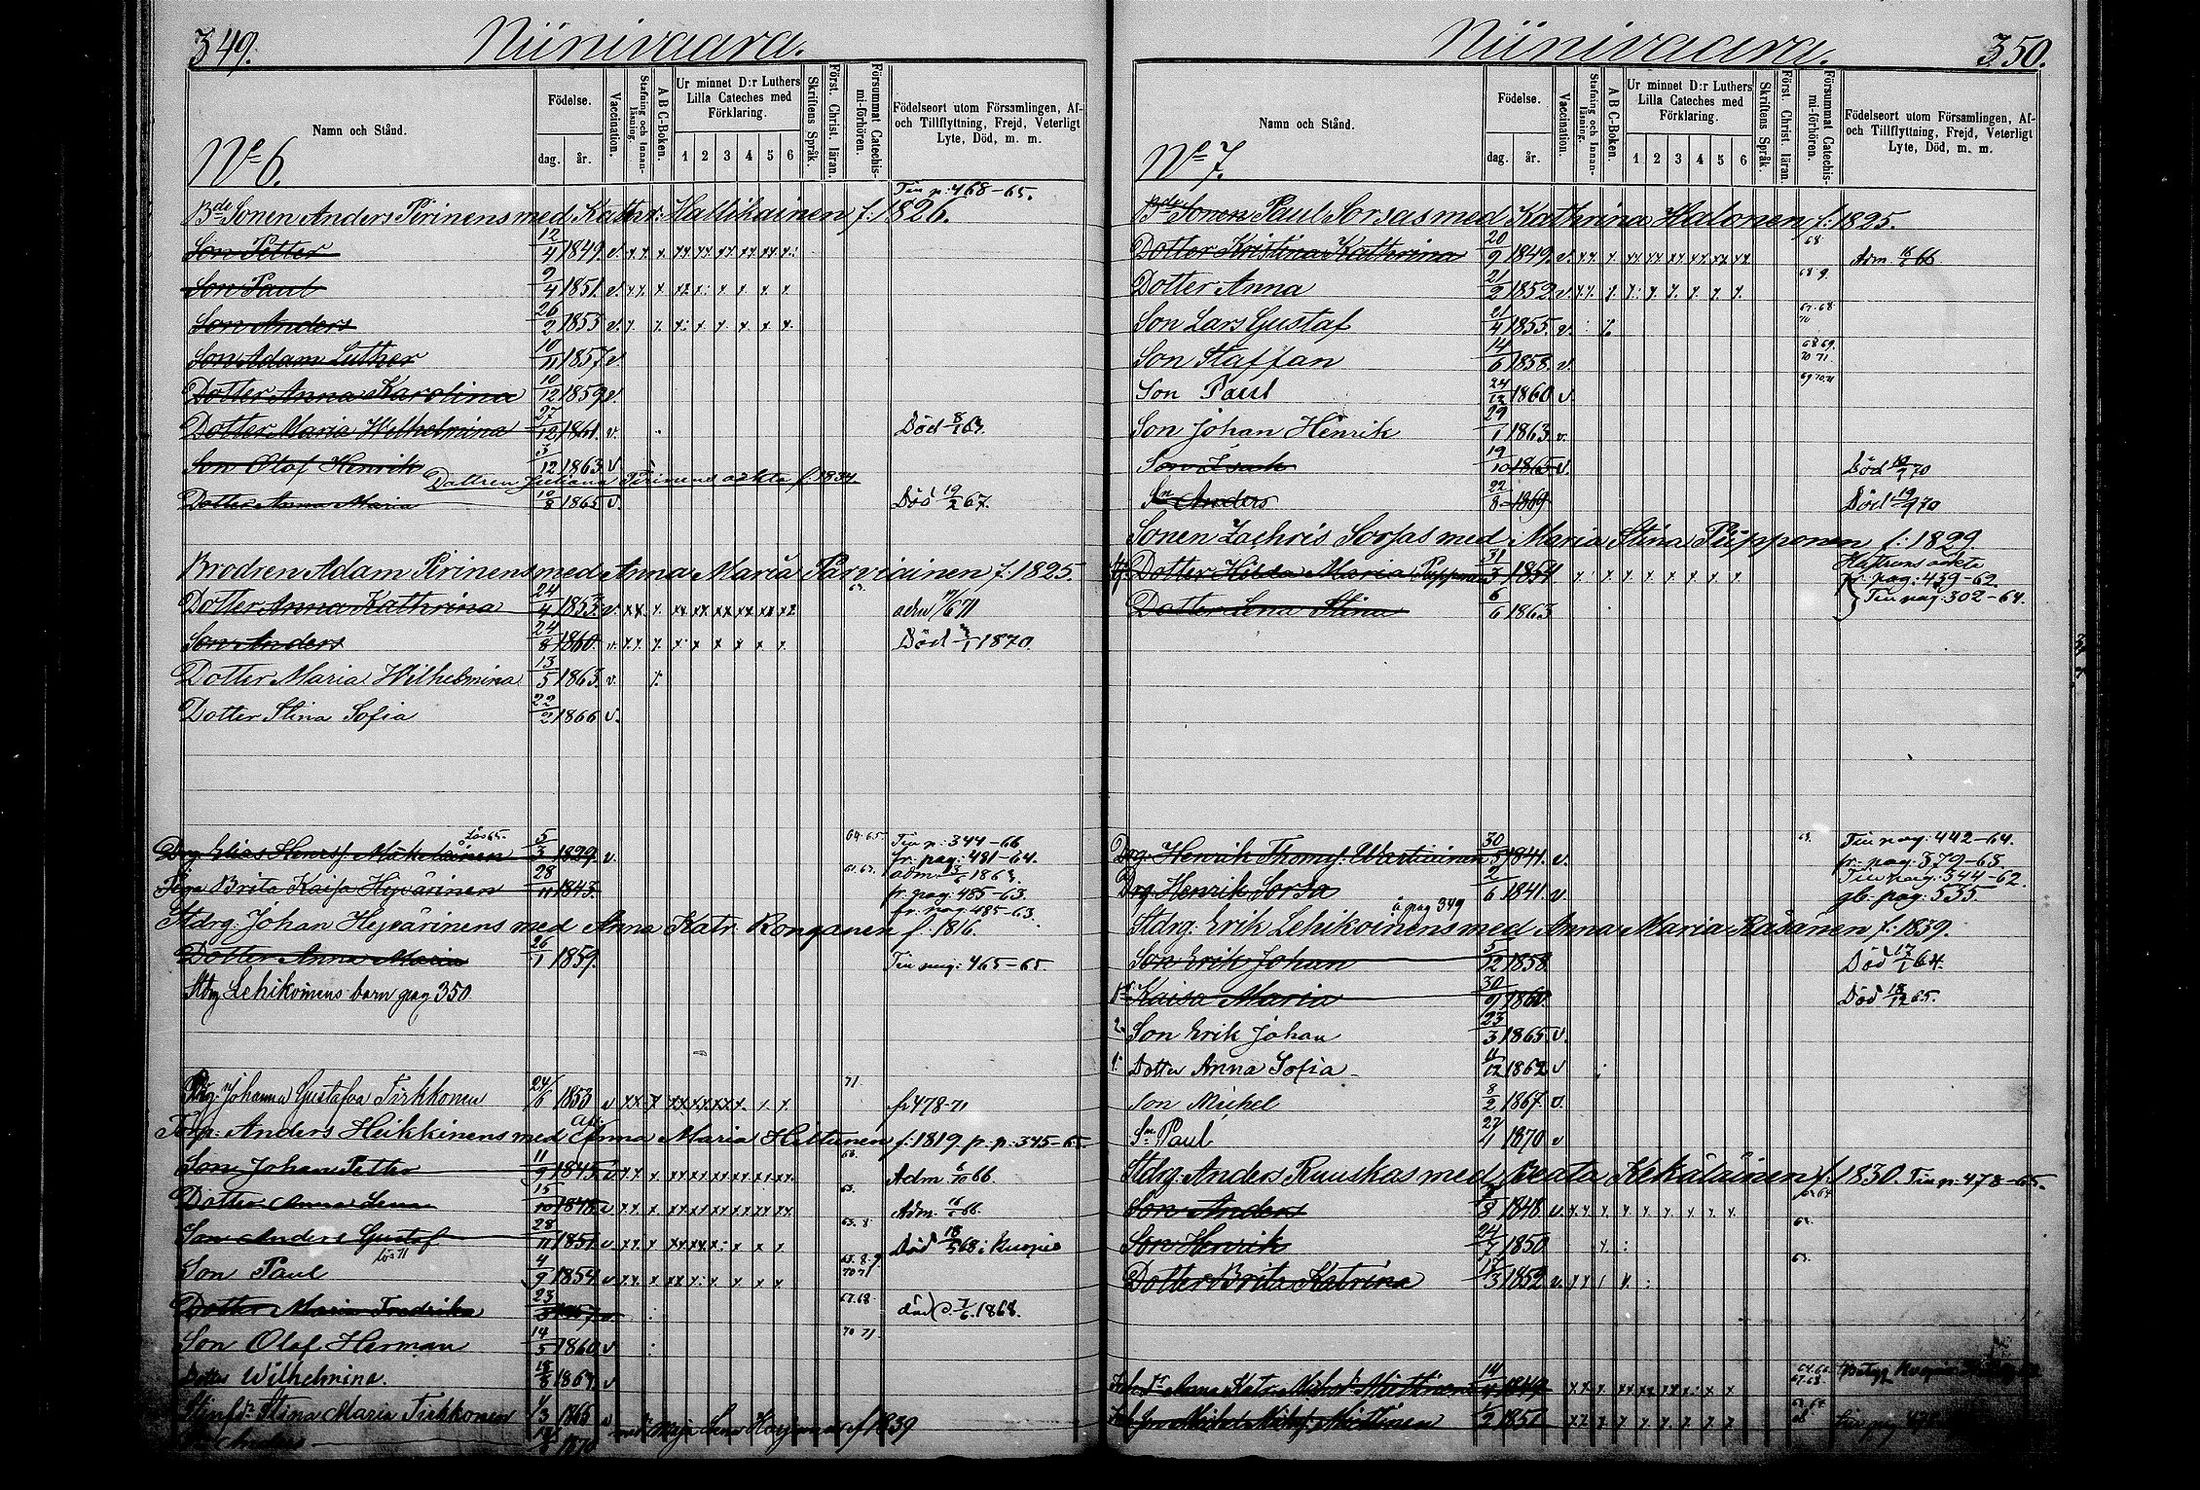 349. Niinivaara.
Namn och Stånd.
Födelse.
dag. år.
Vaccination.
Stafning och Innanläsning.
A B C-Boken.
Ur minnet D:r Luthers Lilla Cateches med Förklaring.
1 2 3 4 5 6
Skriftens Språk.
Först. Christ. läran.
Försummat Catechismi-förhören.
Födelseort utom Församlingen, Af- och Tillflyttning, Frejd, Veterligt Lyte, Död, m. m.
No 6.
Tin p: 468-65.
Bde Sonen Anders Pirinens med Kathr: Hallikainen f: 1826.
Son Petter 12/4 1849 v.
Son Paul 2/4 1851 v.
Son Anders 26/2 1855 v.
Son Adam Luther 10/11 1857 v.
Dotter Anna Karolina 10/12 1859 v.
Dotter Maria Wilhelmina 27/12 1861 v. Död
Son Olof Henrik 3/12 1863 v.
Dottren Juliana Pirinens oäkta f. 1834
Dotter Anna Maria 10/8 1865 v. Död 19/2 67.
Brodren Adam Pirinens med Anna Maria Parviainen f: 1825.
Dotter Anna Kathrina 24/4 1853 v.
Son Anders 24/8 1860 v. Död 1870.
Dotter Maria Wilhelmina 13/5 1863 v.
Dotter Stina Sofia 22/2 1866 v.
Drg Elias Henrsf. Mikeläinen 5/3 1829 v. 64. 65. Tin p: 344-66
fr: pag: 481-64.
Piga Brita Kaisa Hyvärinen 28/11 1843. adm. 1863.
fr. pag: 485-63.
fr. pag: 485-63.
Stdrg: Johan Hyvärinens med Anna Katr. Ronganen f. 1816.
Dotter Anna Maria 26/1 1859. Tin pag: 465-65.
Stdrg Lehikoinens barn pag 350
Johanna Gustafva Tirkkonen 24/6 1853 v 71. fr 478-71
Torp: Anders Heikkinens med Anna Maria Hiltunen f: 1819. p. p: 345-65
Son Johan Petter 11/9 1845 v Adm 66.
Dotter Anna Lena 15/10 1848 v 63. Adm. 66.
Son Anders Gustaf 28/11 1851 v 63. 8. Död 18/5 68 i Kuopio
Son Paul 4/9 1854 v 63. 8. 9 70 71
Dotter Maria Fredrika 23/3 1857 v. 67. 68. död 1868.
Son Olof Herman 14/5 1860 v 70 71
Dotter Wilhelmina. 1864 v
Stina Maria Tirkkonen 1866 v
f 1839
Anders 1870
Niinivaara. 350.
Namn och Stånd.
Födelse.
dag. år.
Vaccination.
Stafning och Innanläsning.
A B C-Boken.
Ur minnet D:r Luthers Lilla Cateches med Förklaring.
1 2 3 4 5 6
Skriftens Språk.
Först. Christ. läran.
Försummat Catechismi-förhören.
Födelseort utom Församlingen, Af- och Tillflyttning, Frejd, Veterligt Lyte, Död, m. m.
No 7.
Bde Sonen Paul Sorsas med Kathrina Halonen f: 1825.
Dotter Kristina Kathrina 20/9 1849 v. 68. Adm. 66.
Dotter Anna 21/2 1852 v. 68 9.
Son Lars Gustaf 21/4 1855 v. 67. 68 70
Son Staffan 14/6 1858 v. 68 69. 70 71.
Son Paul 24/12 1860 v. 69 70 71
Son Johan Henrik 29/1 1863 v.
Son Isach 19/10 1865 v. Död 70
Sn Anders 22/8 1869 Död 19/9 70
Sonen Zachris Sorsas med Maria Stina Piipponen f: 1829
Hustruns oäkta
Dotter Hilda Maria Pipponen 31/3 1851 fr. pag: 439-62.
Dotter Lena Stina 6/6 1863 Tin pag: 302-64.
Drg: Henrik Thomsf. Wartiainen 30/5 1841. v. 63. Tin pag: 442-64.
fr. pag: 379-63
Drg: Henrik Sorsa 2/6 1841. v. Tin pag: 344-62.
gb. pag: 535.
å pag 349
Stdrg: Erik Lehikoinens med Anna Maria Räsänen f: 1839.
Son Erik Johan 5/12 1858 Död 17/1 64.
Kaisa Maria 30/9 1860 Död 18/12 65.
2. Son Erik Johan 23/3 1865 v.
1. Dotter Anna Sofia 11/12 1862 v
Son Michel 8/2 1867. v.
Sn Paul 27/1 1870 v
Stdrg: Anders Ruuskas med Beata Kekäläinen f: 1830. Tin p: 478-65.
Son Anders 1848. v.
Son Henrik 24/7 1850
Dotter Brita Katrina 1852 v. 63.
14/4 1849
1851